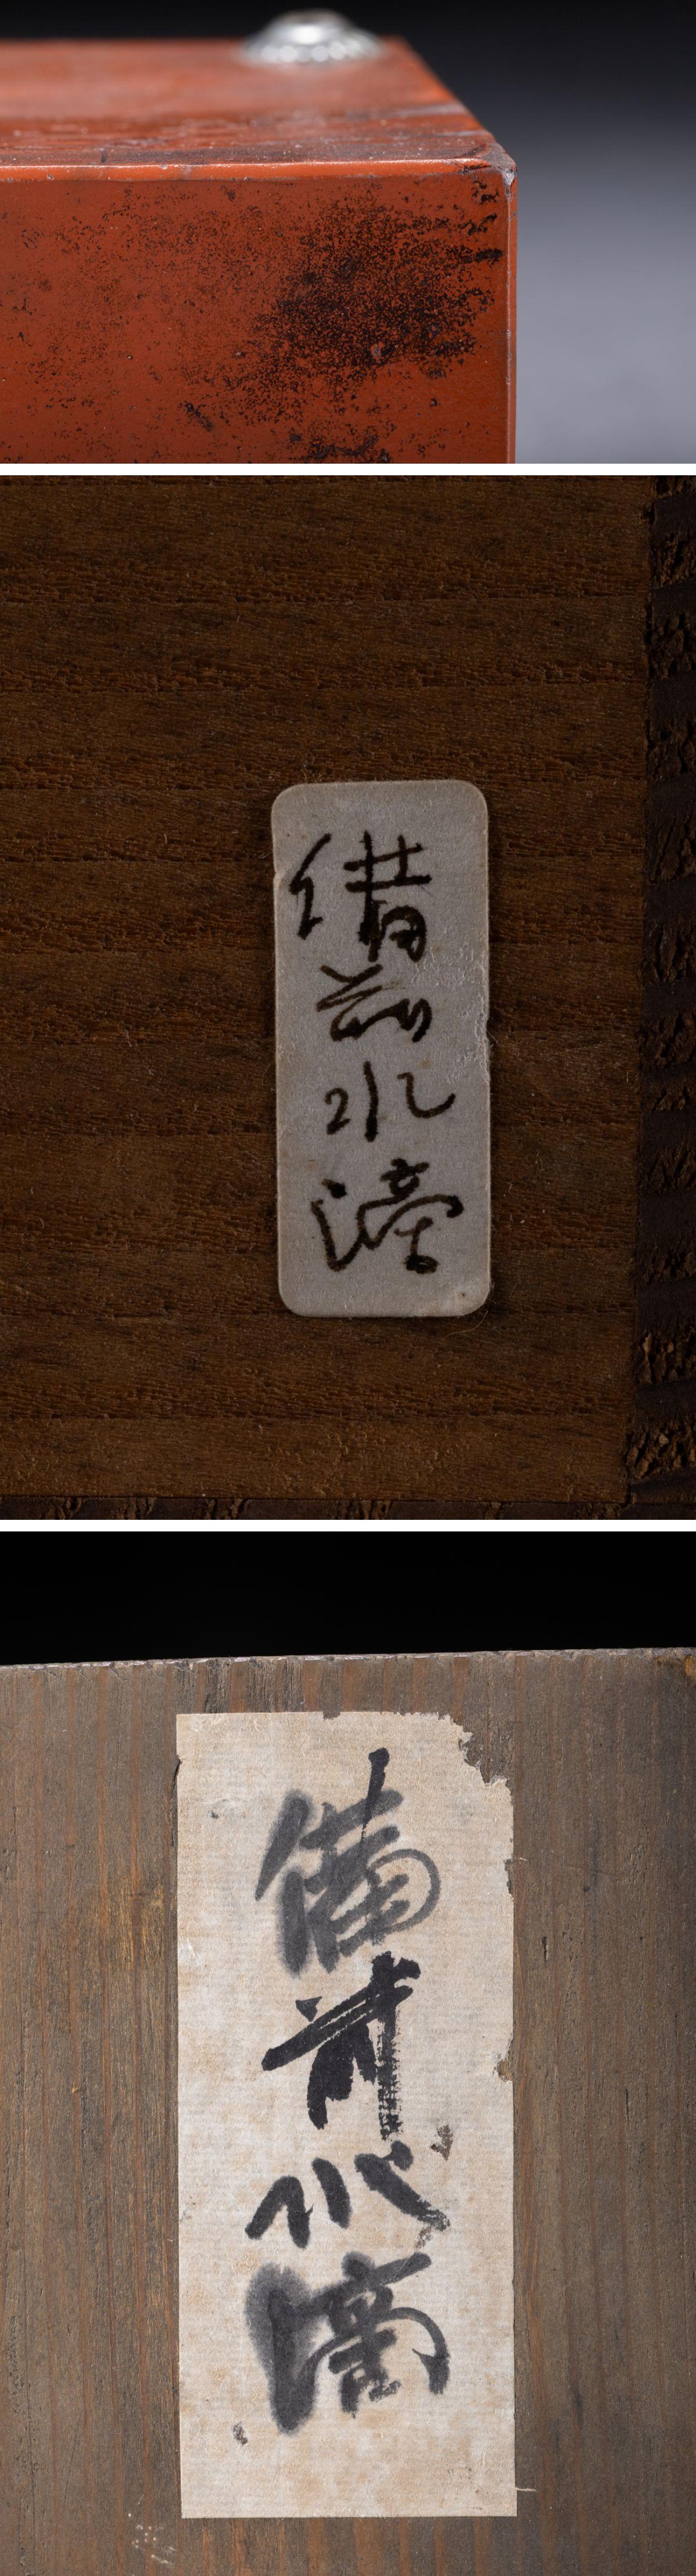 備前水滴
備前水滴